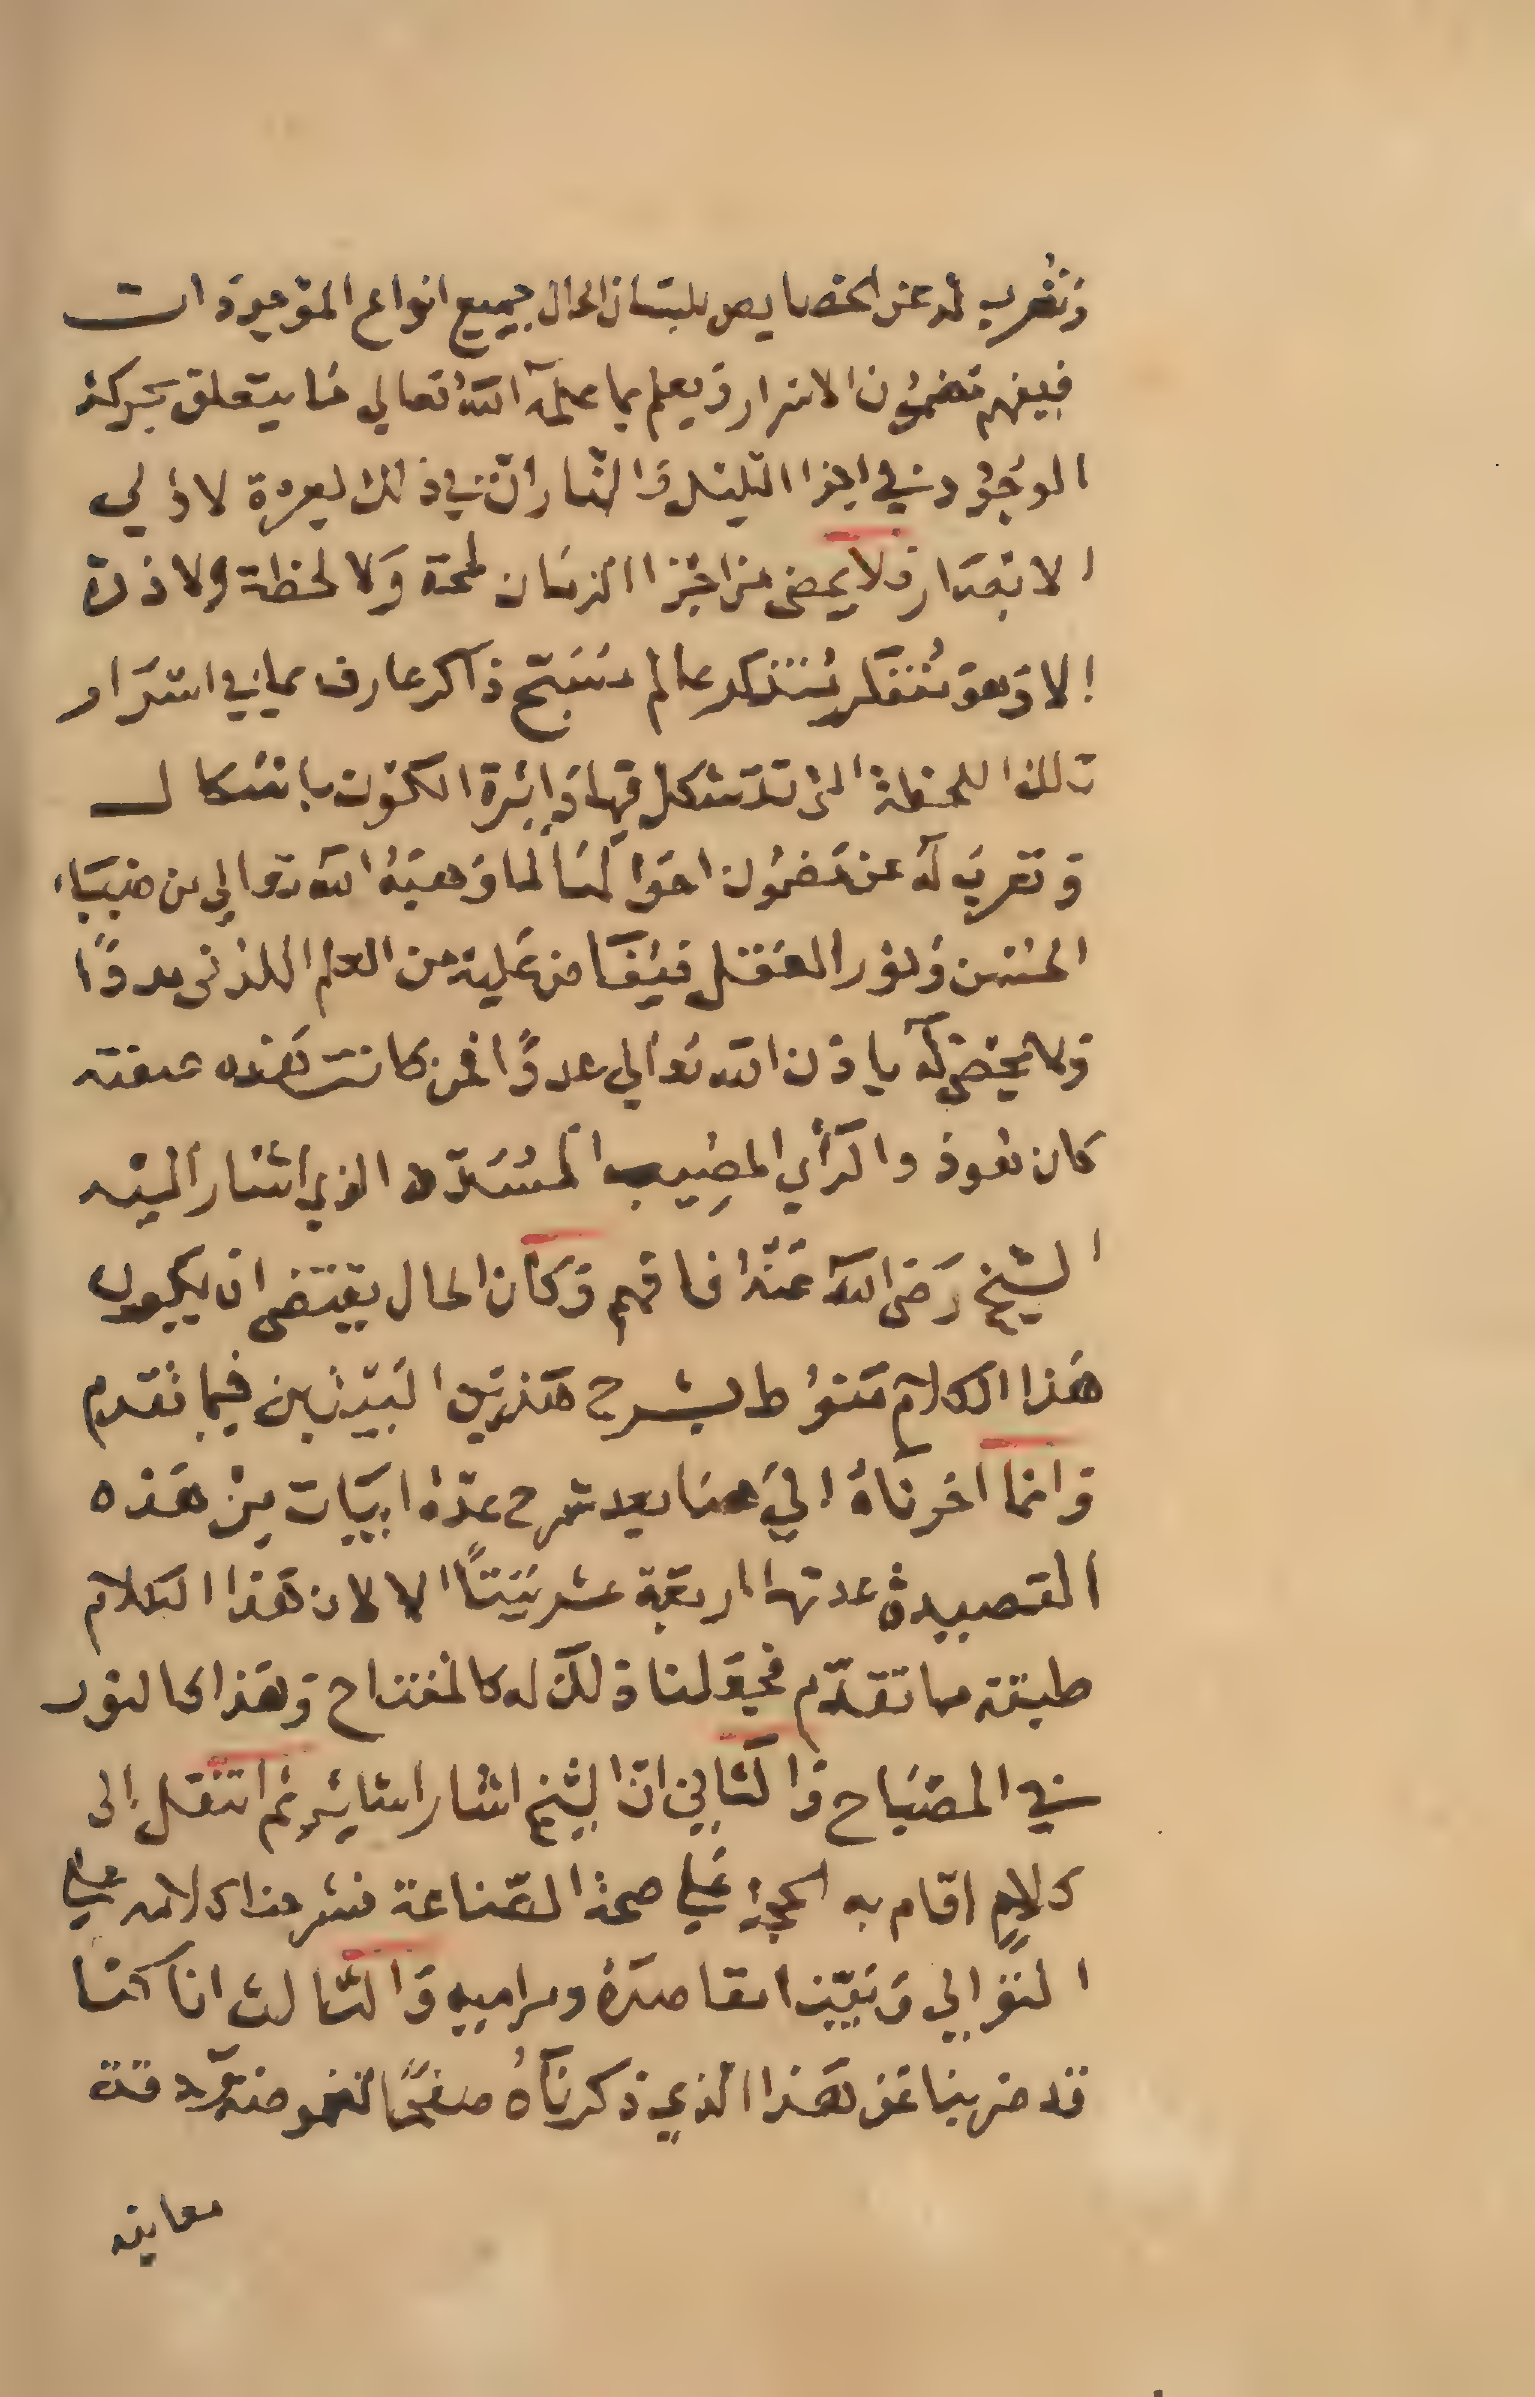 وتعرب له عن الخصايص بلسان الحال جميع انواع الموجودات
فيفهم مضمون الاسرار ويعلم بما علمه الله تعالى ما يتعلق بحركة
الوجود في اجزا الليل والنهار ان في ذلك لعبرة لاولي
الابصار فلا يمضي من اجزا الزمان لمحة ولا لحظة ولا ذرة
الا وهو متفكر متذكر عالم مسبح ذاكر عارف بما في اسرار
تلك اللحظة التي تتشكل فيها دايرة الكون باشكال
وتعرب له عن مضمون احوالها لما وهبه الله تعالى من ضياء
الحسن ونور العقل فيفاض عليه من العلم اللدني مددًا
ولا يحصى له باذن الله تعالى عددًا فمن كانت هذه صفته
كان نفوذ والرأي المصيب المسدد الذي أشار اليه
الشيخ رضى الله عنه فافهم وكان الحال يقتضى ان يكون
هذا الكلام منوط بشرح هذين البيتين فيما تقدم
وانما اخرناه الى هنا بعد شرح عدة ابيات من هذه
القصيدة عدتها اربعة عشر بيتًا الا لان هذا الكلام
طبقه ما تقدم فجعلنا ذلك له كالمفتاح وهذا كالنور
في المصباح والثاني ان الشيخ اشار اشايرثم انتقل إلى
كلام اقام به الحجة على صحة الصناعة فشرحنا كلامه على
التوالي وبينا مقاصده ومراميه والثالث انا كنا
قد ضربنا عن هذا الذي ذكرناه صفحًا لغموضه ودقة
معانيه